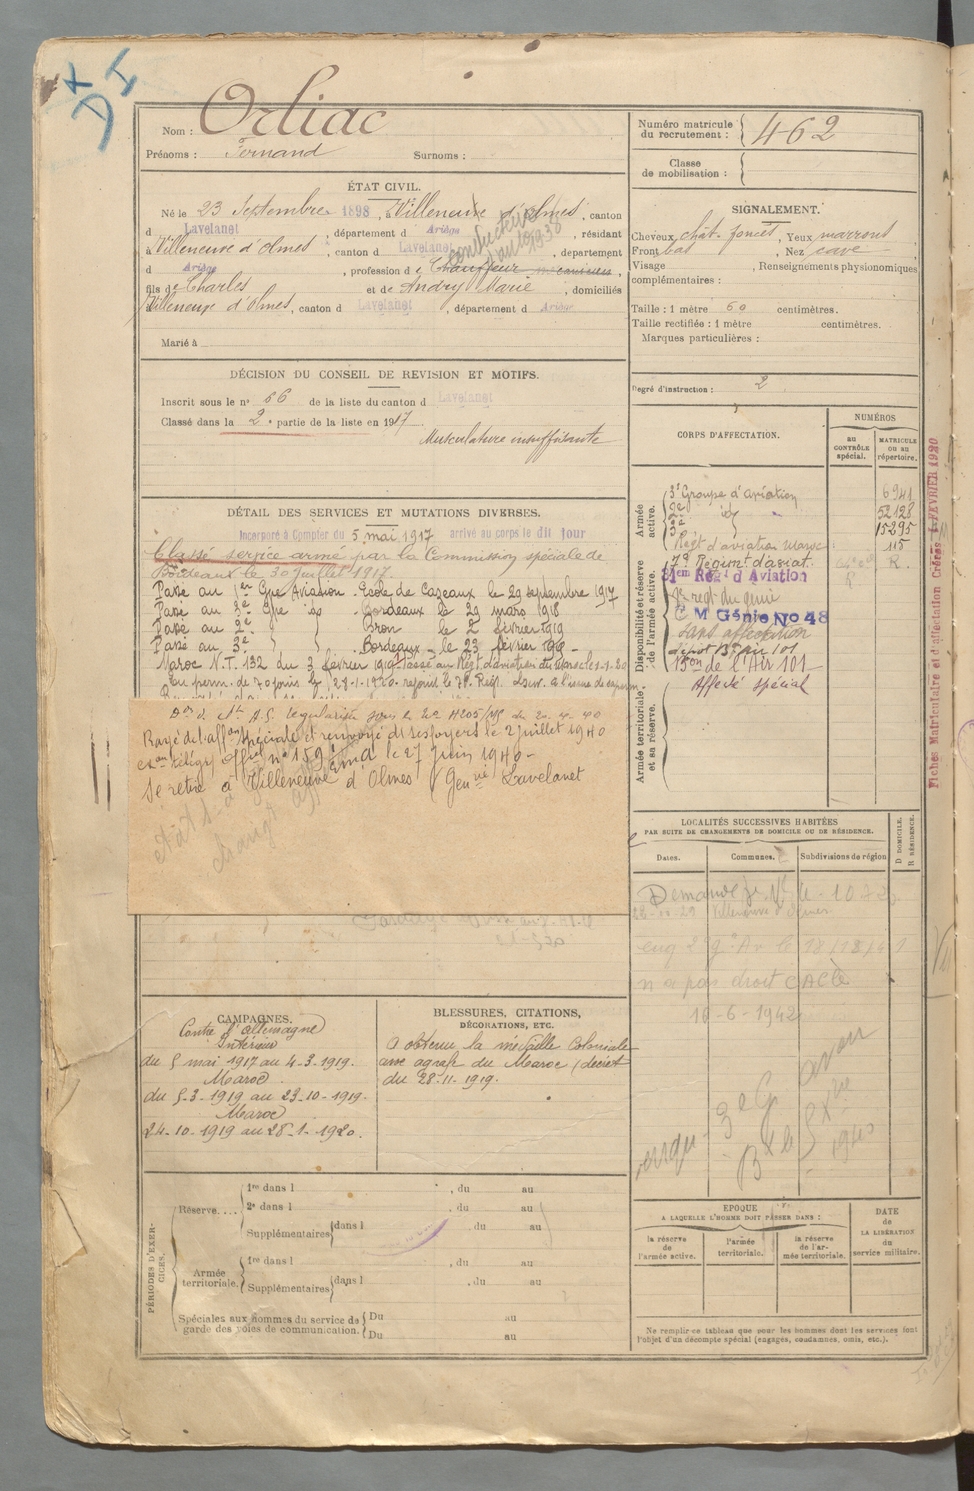 Nom : Orliac
Prénoms : Fernand Surnoms :
Numéro matricule du recrutement : 462
Classe de mobilisation :
ÉTAT CIVIL.
Né le 23 Septembre 1898, à Villeneuve d'Olmes, canton
d Lavelanet, département d Ariège, résidant
à Villeneuve d'Olmes, canton d Lavelanet, département
d Ariège, profession de Chauffeur mécanicien,
conducteur d'auto 1938
fils de Charles et de Andry Marie, domiciliés
Villeneuve d'Olmes, canton d Lavelanet, département d Ariège
Marié à
SIGNALEMENT.
Cheveux chât. foncés, Yeux marrons
Front bas, Nez cave
Visage, Renseignements physionomiques
complémentaires :
Taille : 1 mètre 60 centimètres.
Taille rectifiée : 1 mètre centimètres.
Marques particulières :
Degré d'instruction : 2
DÉCISION DU CONSEIL DE REVISION ET MOTIFS.
Inscrit sous le n° 66 de la liste du canton d Lavelanet
Classé dans la 2e partie de la liste en 1917.
Musculature insuffisante
DÉTAIL DES SERVICES ET MUTATIONS DIVERSES.
Incorporé à Compter du 5 mai 1917 arrivé au corps le dit jour
Classé service armé par la Commission spéciale de
Bordeaux le 30 juillet 1917.
Passé au 1er Gpe Aviation - Ecole de Cazeaux le 29 septembre 1917
Passé au 3e Gpe do Bordeaux le 29 mars 1918
Passé au 2e Bron le 2 février 1919
Passé au 3e Bordeaux le 23 février 1919
Maroc N.T. 132 du 3 février 1919 Passé au Régt d'aviation du Maroc le 1-1-20
En perm. de 70 jours le 28-1-1920. rejoint le 7e Rég.
régularisée sous le n°
Rayé de l'affon spéciale et renvoyé dans ses foyers le 2 juillet 1940
le 27 Juin 1940-
Se retire à Villeneuve d'Olmes (Genie Lavelanet
CORPS D'AFFECTATION.
NUMÉROS
au CONTRÔLE spécial.
MATRICULE OU AU répertoire.
Armée active.
3e Groupe d'aviation 6941
2e do 52128
3e 15295
Régt d'aviation Maroc 115
Disponibilité et réserve de l'armée active.
7e Régimt d'aviat. R.
31em Régt d'Aviation
régt du génie
C M Génie No 48
Sans affectation
Dépôt Bon Air 101
Bon de l'Air 101
Affecté spécial
Armée territoriale et sa réserve.
Fiches Matriculaire et d'affectation Créées FÉVRIER 1920
LOCALITÉS SUCCESSIVES HABITÉES
PAR SUITE DE CHANGEMENTS DE DOMICILE OU DE RÉSIDENCE.
Dates. Communes. Subdivisions de région
D DOMICILE.
R RÉSIDENCE.
n'a pas droit CACte
10-6-1942
CAMPAGNES.
Contre l'Allemagne
Intérieur
du 5 mai 1917 au 4-3-1919.
Maroc
du 5-3-1919 au 23-10-1919.
Maroc
24-10-1919 au 28-1-1920.
BLESSURES, CITATIONS,
DÉCORATIONS, ETC.
A obtenu la médaille Coloniale
avec agrafe du Maroc (décret
du 28-11-1919.
PÉRIODES D'EXERCICES.
Réserve....
1re dans l , du au
2e dans l , du au
Supplémentaires dans l , du au
Armée territoriale.
1re dans l , du au
Supplémentaires dans l , du au
Spéciales aux hommes du service de garde des voies de communication.
Du au
Du au
EPOQUE
A LAQUELLE L'HOMME DOIT PASSER DANS :
la réserve de l'armée active.
l'armée territoriale.
la réserve de l'armée territoriale.
DATE de LA LIBÉRATION du service militaire.
Ne remplir ce tableau que pour les hommes dont les services font
l'objet d'un décompte spécial (engagés, condamnés, omis, etc.).